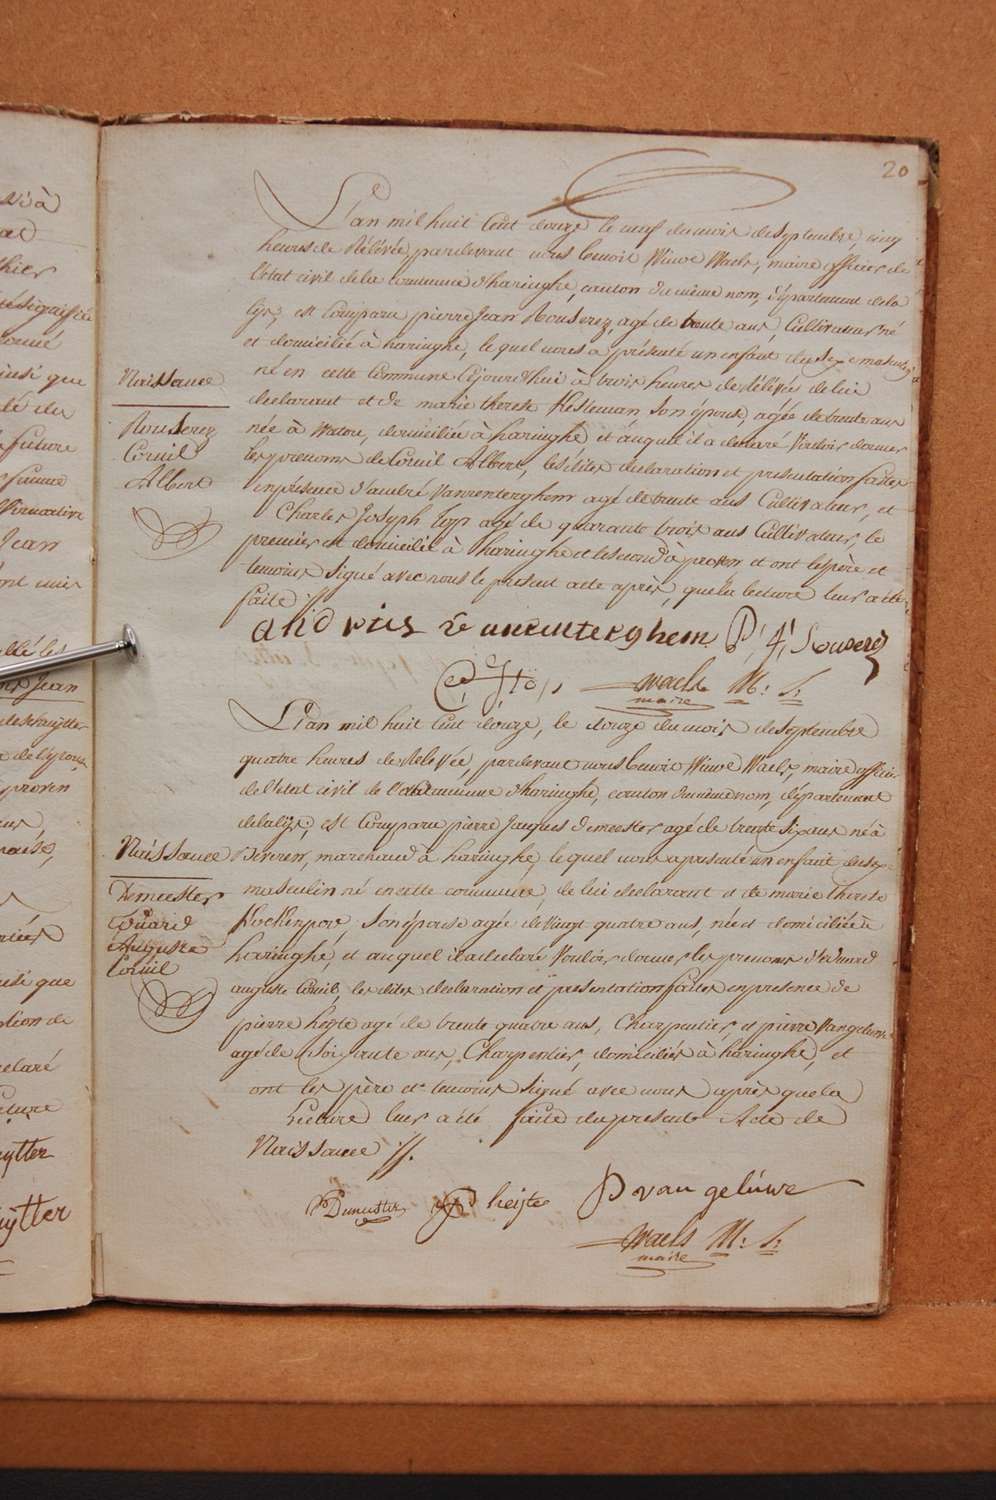 20
L'an mil huit Cent douze le neuf du mois de septembre, cinq
heures de Rélévée, pardevant nous benoit Winoc Waels, maire officier de
l'état civil de la commune d'haringhe, canton du même nom, département de la
Lys, est Comparu pierre Jean Rouserez, agé de trente ans, Cultivateur né
et domicilié à haringhe, le quel nous a présenté un enfant du sexe masculin
né en cette Commune Cejourd'huï à trois heures de Rélévée de lui
declarant et de marie therese Kesteman son épouse, agée de trente ans
née à watou, domiciliée à haringhe et auquel il a declaré Vouloir donner
les prenoms de Cornil Albert, les dites declaration et presentation faites
en présence d'andré Vanrenterghem agé de trente ans Cultivateur, et
Charles Joseph Top agé de quarante trois ans Cultivateur, le
premier est domicilié à haringhe et le second à proven et ont le père et
temoins signé avec nous le present acte après que la lecture leur a été
faite //.
Naissance
Rouserez
Cornil
Albert
andries va nrenterghem P: J: Rouserez
C: J: Top waels M: S:
maire
L'an mil huit Cent douze, le douze du mois de septembre
quatre heures de Relévée, pardevant nous benoit Winoc Waels, maire officier
de l'état civil de la commune d'haringhe, canton du même nom, département
de la lys, est Comparu pierre Jacques Demeester agé de trente six ans né à
Beveren, marchand à haringhe, le quel nous a presenté un enfant du sexe
masculin né en cette commune, de lui declarant et de marie therese
Kockenpoo, son épouse agée de Vingt quatre ans, née et domiciliée à
haringhe, et auquel il a declaré Vouloir donner les prenoms d'Eduard
auguste Cornil, les dites declaration et presentation faites en presence de
pierre heyte agé de trente quatre ans, Charpentier, et pierre Vangeluwe
agé de Soixante ans, Charpentier, domiciliés à haringhe, et
ont les père et temoins signé avec nous après que la
Lecture leur a été faite du present Acte de
Naissance //.
Naissance
Demeester
Eduard
Auguste
Cornil
P Demeester P heijte P van geluwe
waels M: S:
maire